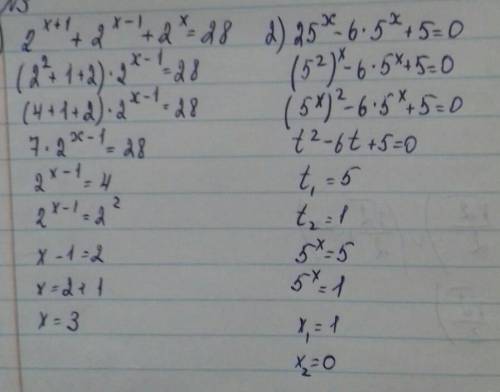 №3
) 2^{x+1} + 2^{x-1} + 2^x = 28
(2² + 1 + 2) · 2^{x-1} = 28
(4+1+2) · 2^{x-1} = 28
7 · 2^{x-1} = 28
2^{x-1} = 4
2^{x-1} = 2²
x - 1 = 2
x = 2 + 1
x = 3
2) 25^x - 6 · 5^x + 5 = 0
(5²)^x - 6 · 5^x + 5 = 0
(5^x)² - 6 · 5^x + 5 = 0
t² - 6t + 5 = 0
t₁ = 5
t₂ = 1
5^x = 5
5^x = 1
x₁ = 1
x₂ = 0